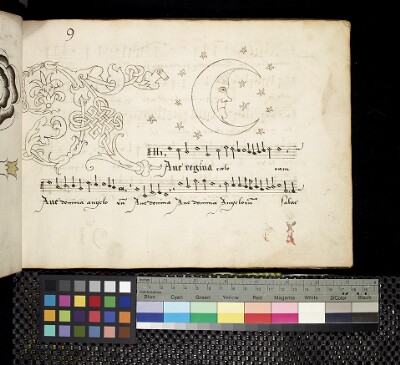 9
Aue regina celo rum
Aue domina angelo Aue domina Aue domina Angeloru Salue
Blue Cyan Green Yellow Red Magenta White 3/Color Black